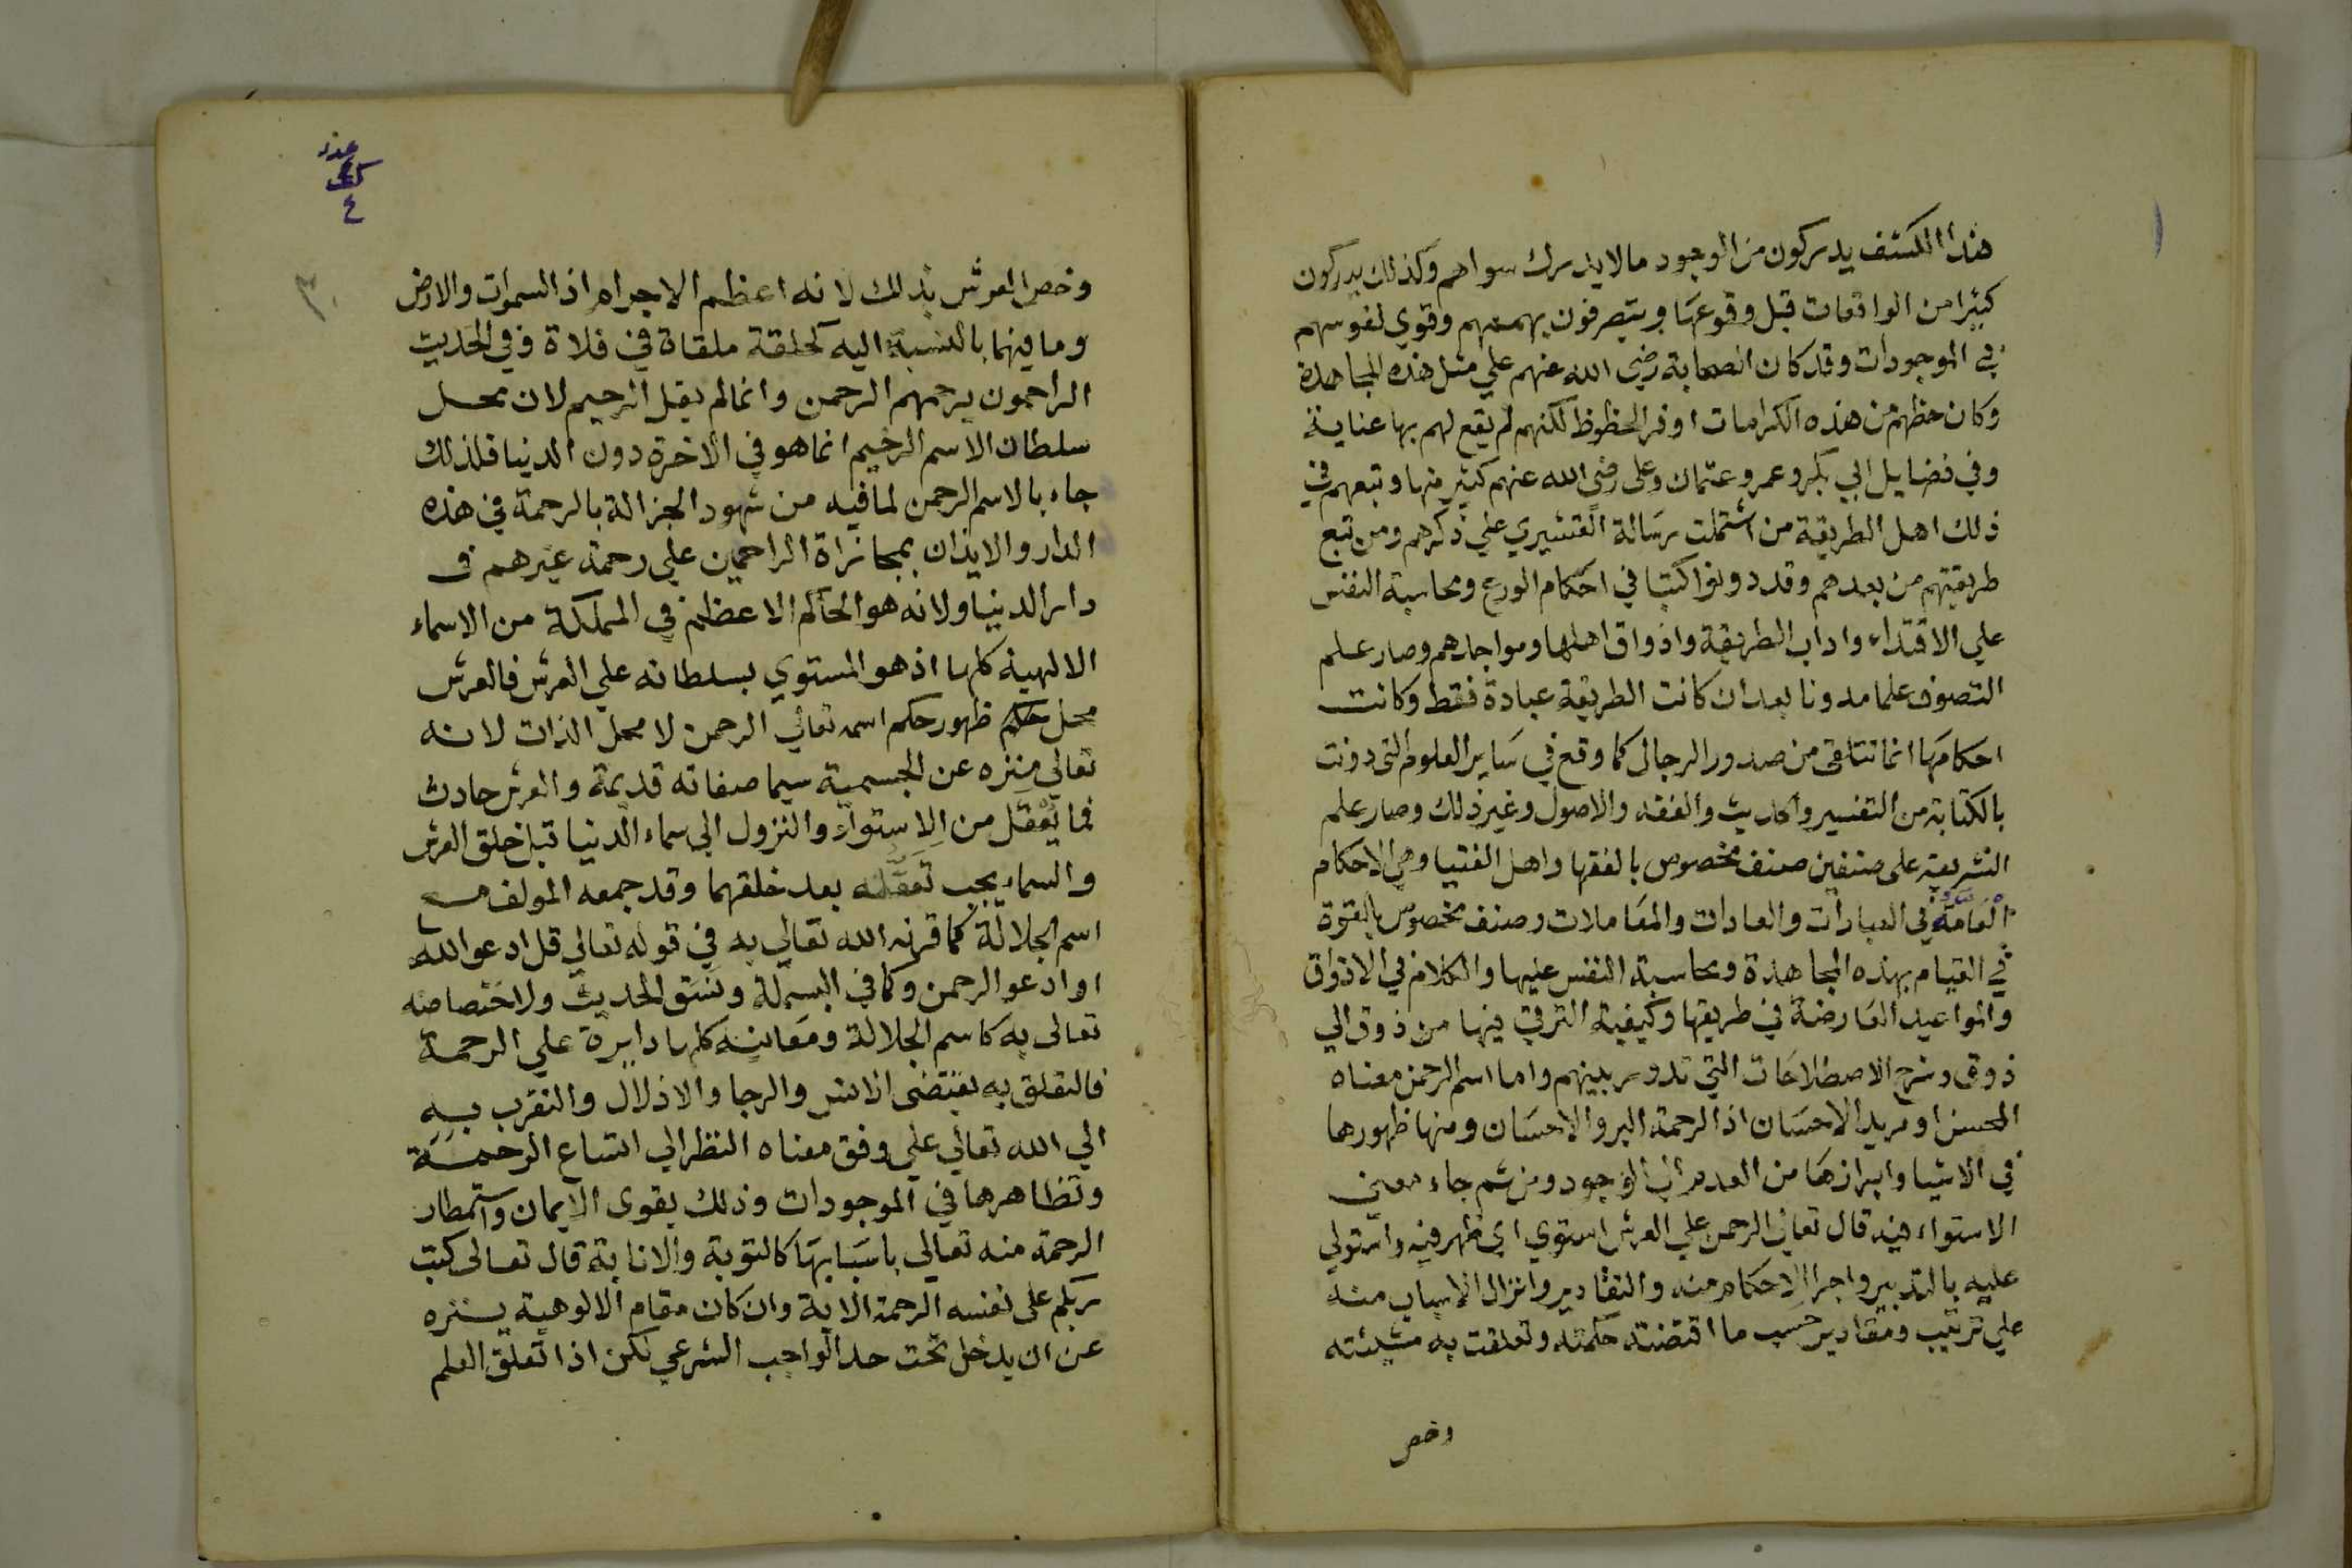 هذا الكشف يدركون من الوجود مالا يدرك سواهم وكذلك يدركون
كثيرا من الواقعات قبل وقوعها ويتصرفون بهممهم وقوي نفوسهم
في الموجودات وقد كان الصحابة رضي الله عنهم علي مثل هذه المجاهدة
وكان حظهم من هذه الكرامات اوفر الحظوظ لكنهم لم يقع لهم بها عناية
وفي فضايل ابي بكر وعمر وعثمان وعلى رضي الله عنهم كثير منها وتبعهم في
ذلك اهل الطريقة من اشتملت رسالة القشيري علي ذكرهم ومن تبع
طريقتهم من بعدهم وقد دونوا كتبا في احكام الورع ومحاسبة النفس
علي الاقتداء واداب الطريقة واذواق اهلها ومواجدهم وصار علم
التصوف علما مدونا بعد ان كانت الطريقة عبادة فقط وكانت
احكامها انما تتلقى من صدور الرجال كما وقع في ساير العلوم التى دونت
بالكتابة من التفسير والحديث والفقه والاصول وغير ذلك وصار علم
الشريعة على صنفين صنف مخصوص بالفقها واهل الفتيا وهي الاحكام
العامة في العبادات والعادات والمعاملات وصنف مخصوص بالقوم
في القيام بهذه المجاهدة ومحاسبة النفس عليها والكلام في الاذواق
والمواجيد العارضة في طريقها وكيفية الترقي فيها من ذوق الي
ذوق وشرح الاصطلاحات التي تدور بينهم واما اسم الرحمن معناه
المحسن او مريد الاحسان اذ الرحمة البر والاحسان ومنها ظهورها
في الاشيا وابرازها من العدم الي الوجود ومن ثم جاء معنى
الاستواء فيه قال تعالي الرحمن علي العرش استوي اي ظهر فيه واستولي
عليه بالتدبير واجرا الاحكام منه والتقادير وانزال الاسباب منه
علي ترتيب ومقادير حسب ما اقتضته حكمته وتعلقت به مشيئته
وخص
عدد
٤
٣٠
وخص العرش بذلك لانه اعظم الاجرام اذ السموات والارض
وما فيهما بالنسبة اليه كحلقة ملقاة في فلاة وفي الحديث
الراحمون يرحمهم الرحمن وانما لم يقل الرحيم لان محل
سلطان الاسم الرحيم انما هو في الاخرة دون الدنيا فلذلك
جاء بالاسم الرحمن لما فيه من شهود الجزالة بالرحمة في هذه
الدار والايذان بمجازاة الراحمين علي رحمة غيرهم في
دار الدنيا ولانه هو الحاكم الاعظم في المملكة من الاسماء
الالهية كلها اذ هو المستوي بسلطانه علي العرش فالعرش
محل ظهور حكم اسمه تعالي الرحمن لا محل الذات لانه
تعالي منزه عن الجسمية سيما صفاته قديمة والعرش حادث
فما يتعقل من الاستواء والنزول الي سماء الدنيا قبل خلق العرش
والسماء يجب تعقله بعد خلقهما وقد جمعه المولف مع
اسم الجلالة كما قرنه الله تعالي به في قوله تعالي قل ادعوا الله
او ادعوا الرحمن وكما في البسملة ونسق الحديث ولاختصاصه
تعالى به كاسم الجلالة ومعانيه كلها دايرة علي الرحمة
فالتعلق به يقتضى الانس والرجا والاذلال والتقرب به
الي الله تعالي علي وفق معناه النظر الي اتساع الرحمة
وتظاهرها في الموجودات وذلك يقوى الايمان واستمطار
الرحمة منه تعالي باسبابها كالتوبة والانابة قال تعالى كتب
ربكم على نفسه الرحمة الاية وان كان مقام الالوهية ينزه
عن ان يدخل تحت حد الواجب الشرعي لكن اذا تعلق العلم